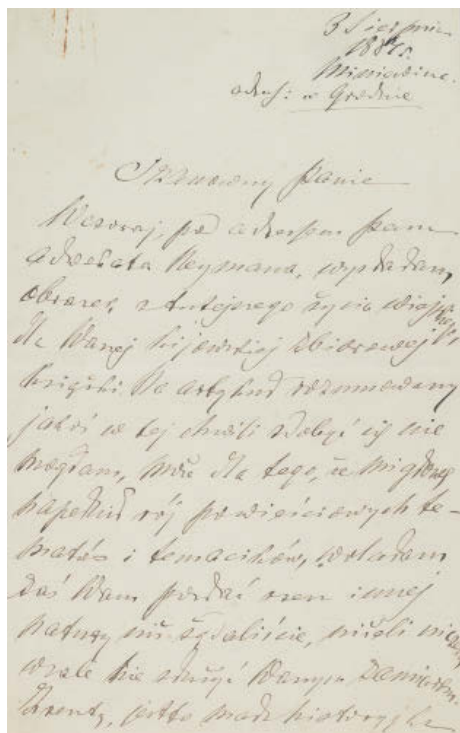 3 Sierpnia
188 r.
Miniewicze.
adres: w Grodnie
Szanowny Panie
Wczoraj, pod adresem pana
adwokata Heymana, wysłałam
obrazek z tutejszego życia wiejskiego,
dla Waszej kijowskiej zbiorowej
książki. Na artykuł rozumowany
jakoś w tej chwili zdobyć się nie
mogłam, może dla tego, że mi głowę
napełnił rój powieściowych te-
matów i temacików, wolałam
zaś Wam posłać rzecz innej
natury niż żądaliście, niżeli
wcale nie służyć Waszym zamiarom.
Zresztą, jestto mała historyjka